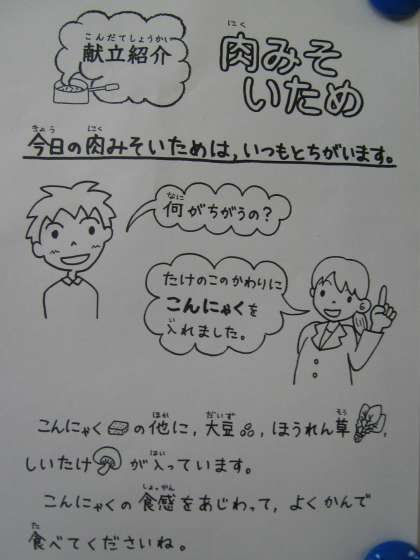 こんだてしょうかい
献立紹介
にく
肉みそ
いため
きょう にく
今日の肉みそいためは,いつもとちがいます。
なに
何がちがうの?
たけのこのかわりに
こんにゃくを
い
入れました。
ほか だいず そう
こんにゃくの他に,大豆,ほうれん草,
はい
しいたけが入っています。
しょっかん
こんにゃくの食感をあじわって,よくかんで
た
食べてくださいね。